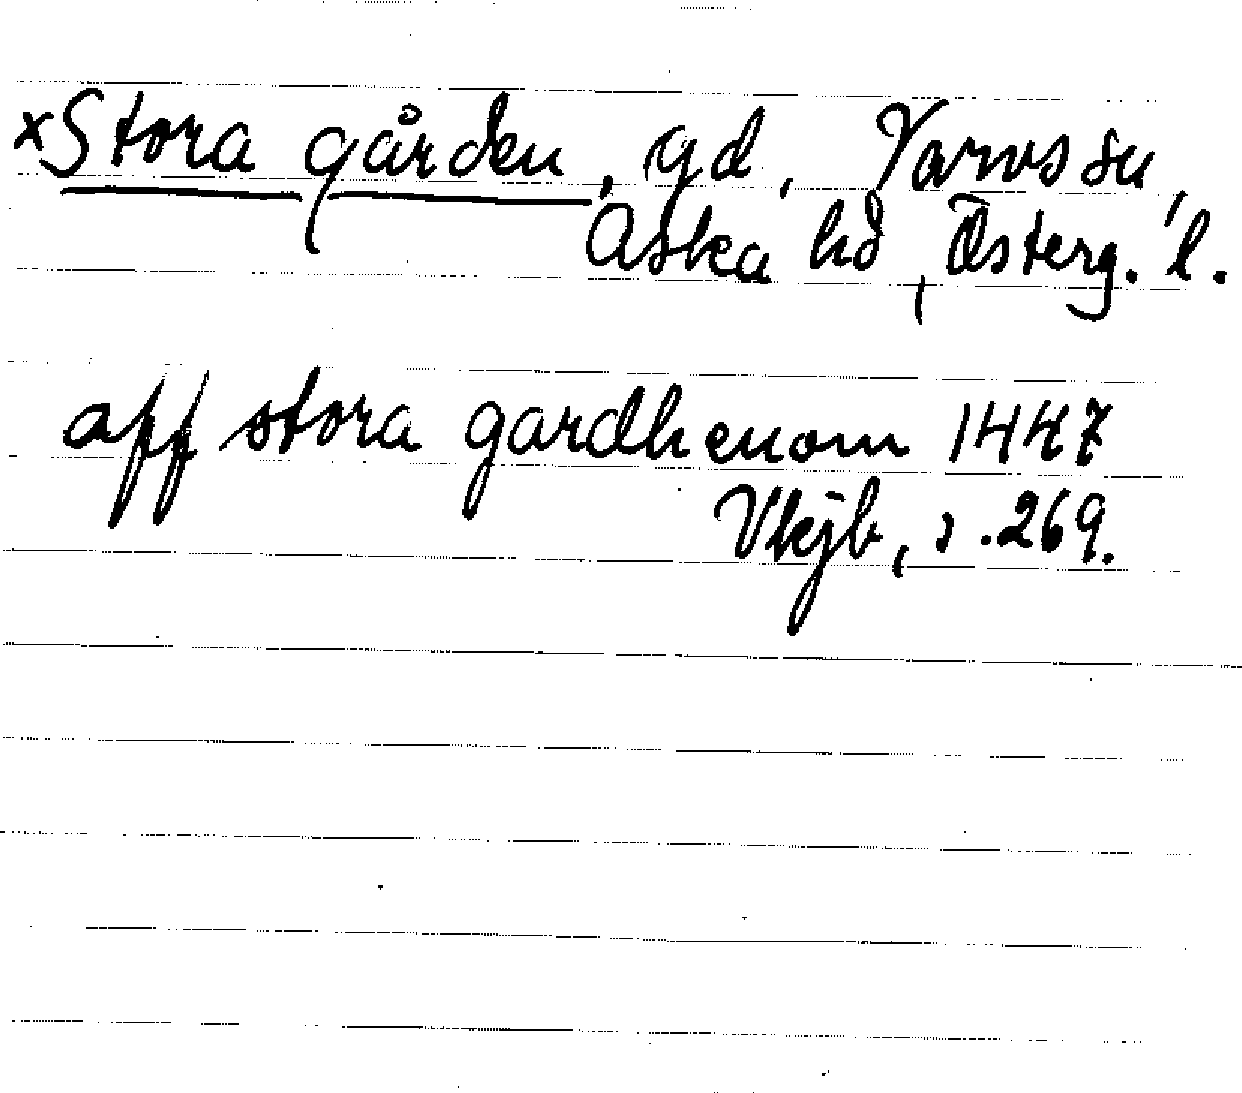 xStora gården, gd, Varvs sn,
Aska hd, Österg. l.
aff stora gardhenom 1447
Vkjb, s. 269.